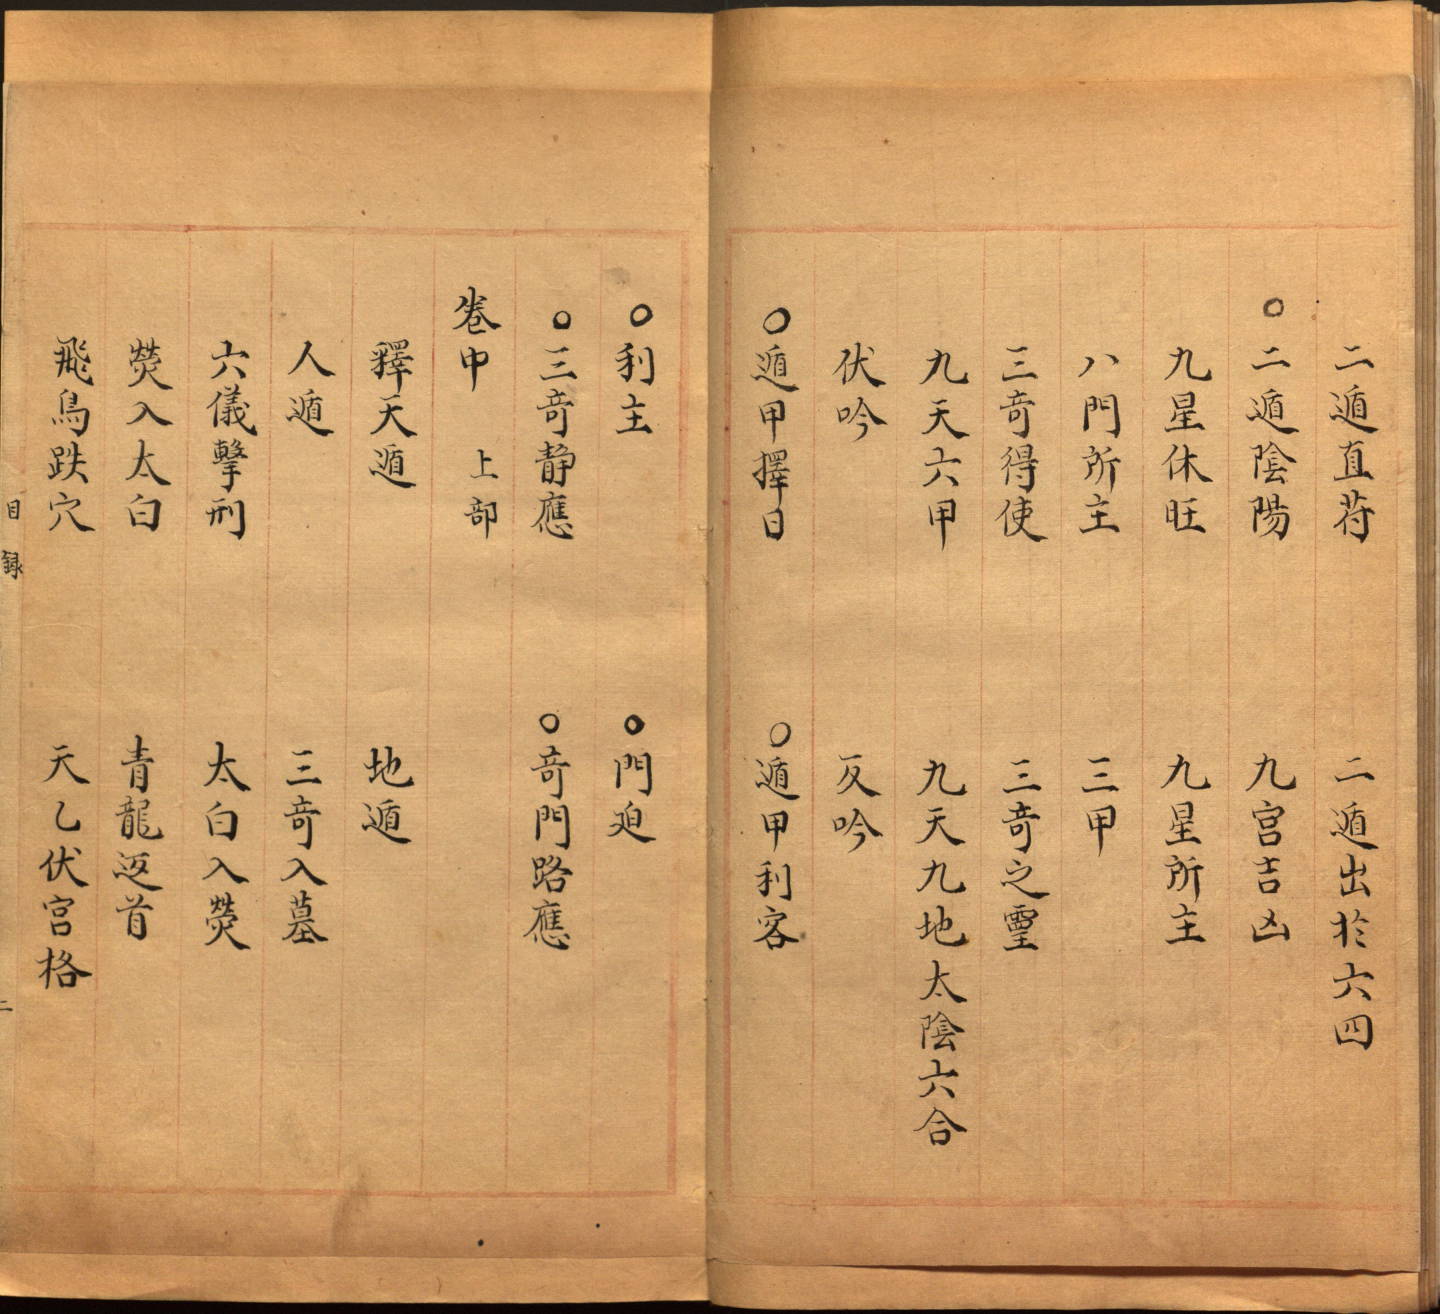 二遁直苻　二遁出於六四
○二遁陰陽　九宮吉凶
九星休旺　九星所主
八門所主　三甲
三奇得使　三奇之霊
九天六甲　九天九地太陰六合
伏吟　反吟
○遁甲擇日　○遁甲利客
○利主　○門廹
○三奇静應　○奇門路應
卷中　上部
釋天遁　地遁
人遁　三奇入墓
六儀擊刑　太白入熒
熒入太白　青龍返首
飛鳥跌穴　天乙伏宮格
目録　二